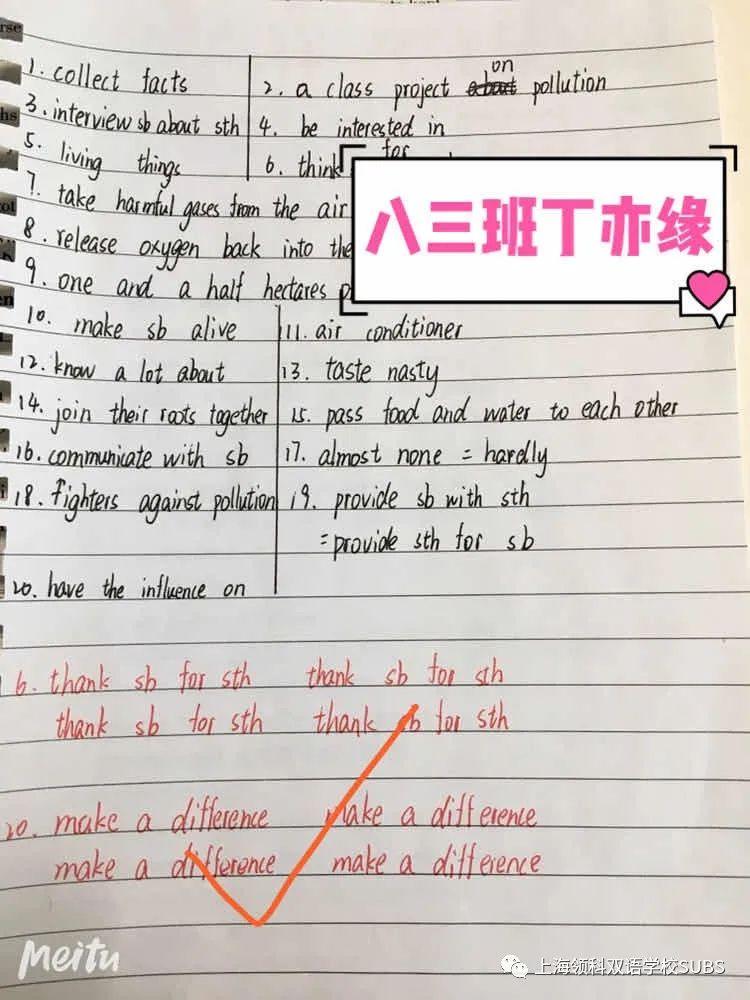 1. collect facts 2. a class project on pollution
3. interview sb about sth 4. be interested in
5. living things 6. think for
7. take harmful gases from the air
8. release oxygen back into the
9. one and a half hectares
八三班丁亦缘
10. make sb alive 11. air conditioner
12. know a lot about 13. taste nasty
14. join their roots together 15. pass food and water to each other
16. communicate with sb 17. almost none = hardly
18. fighters against pollution 19. provide sb with sth
= provide sth for sb
20. have the influence on
6. thank sb for sth thank sb for sth
thank sb for sth thank sb for sth
20. make a difference make a difference
make a difference make a difference
Meitu
上海领科双语学校SUBS